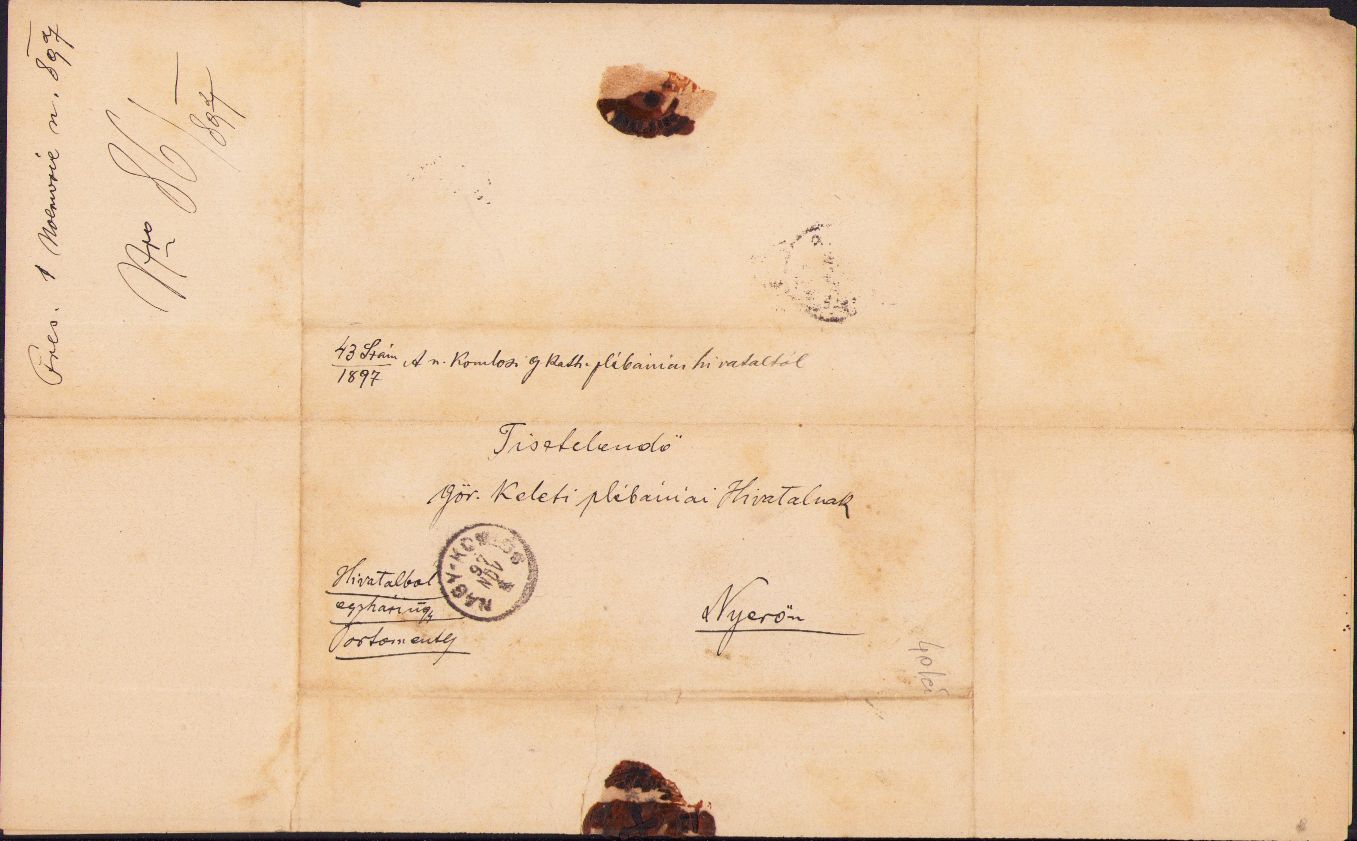 Pres. 1 Noemvrie n. 897
Nro 86/897
43 Szám
1897
A n. Komlosi g kath. plébániai hivataltól
Tisztelendő
gör. Keleti plébániai Hivatalnak
NAGY-KOMLÓS
Hivatalbol
egyházügy
Portomentes
Nyerőn